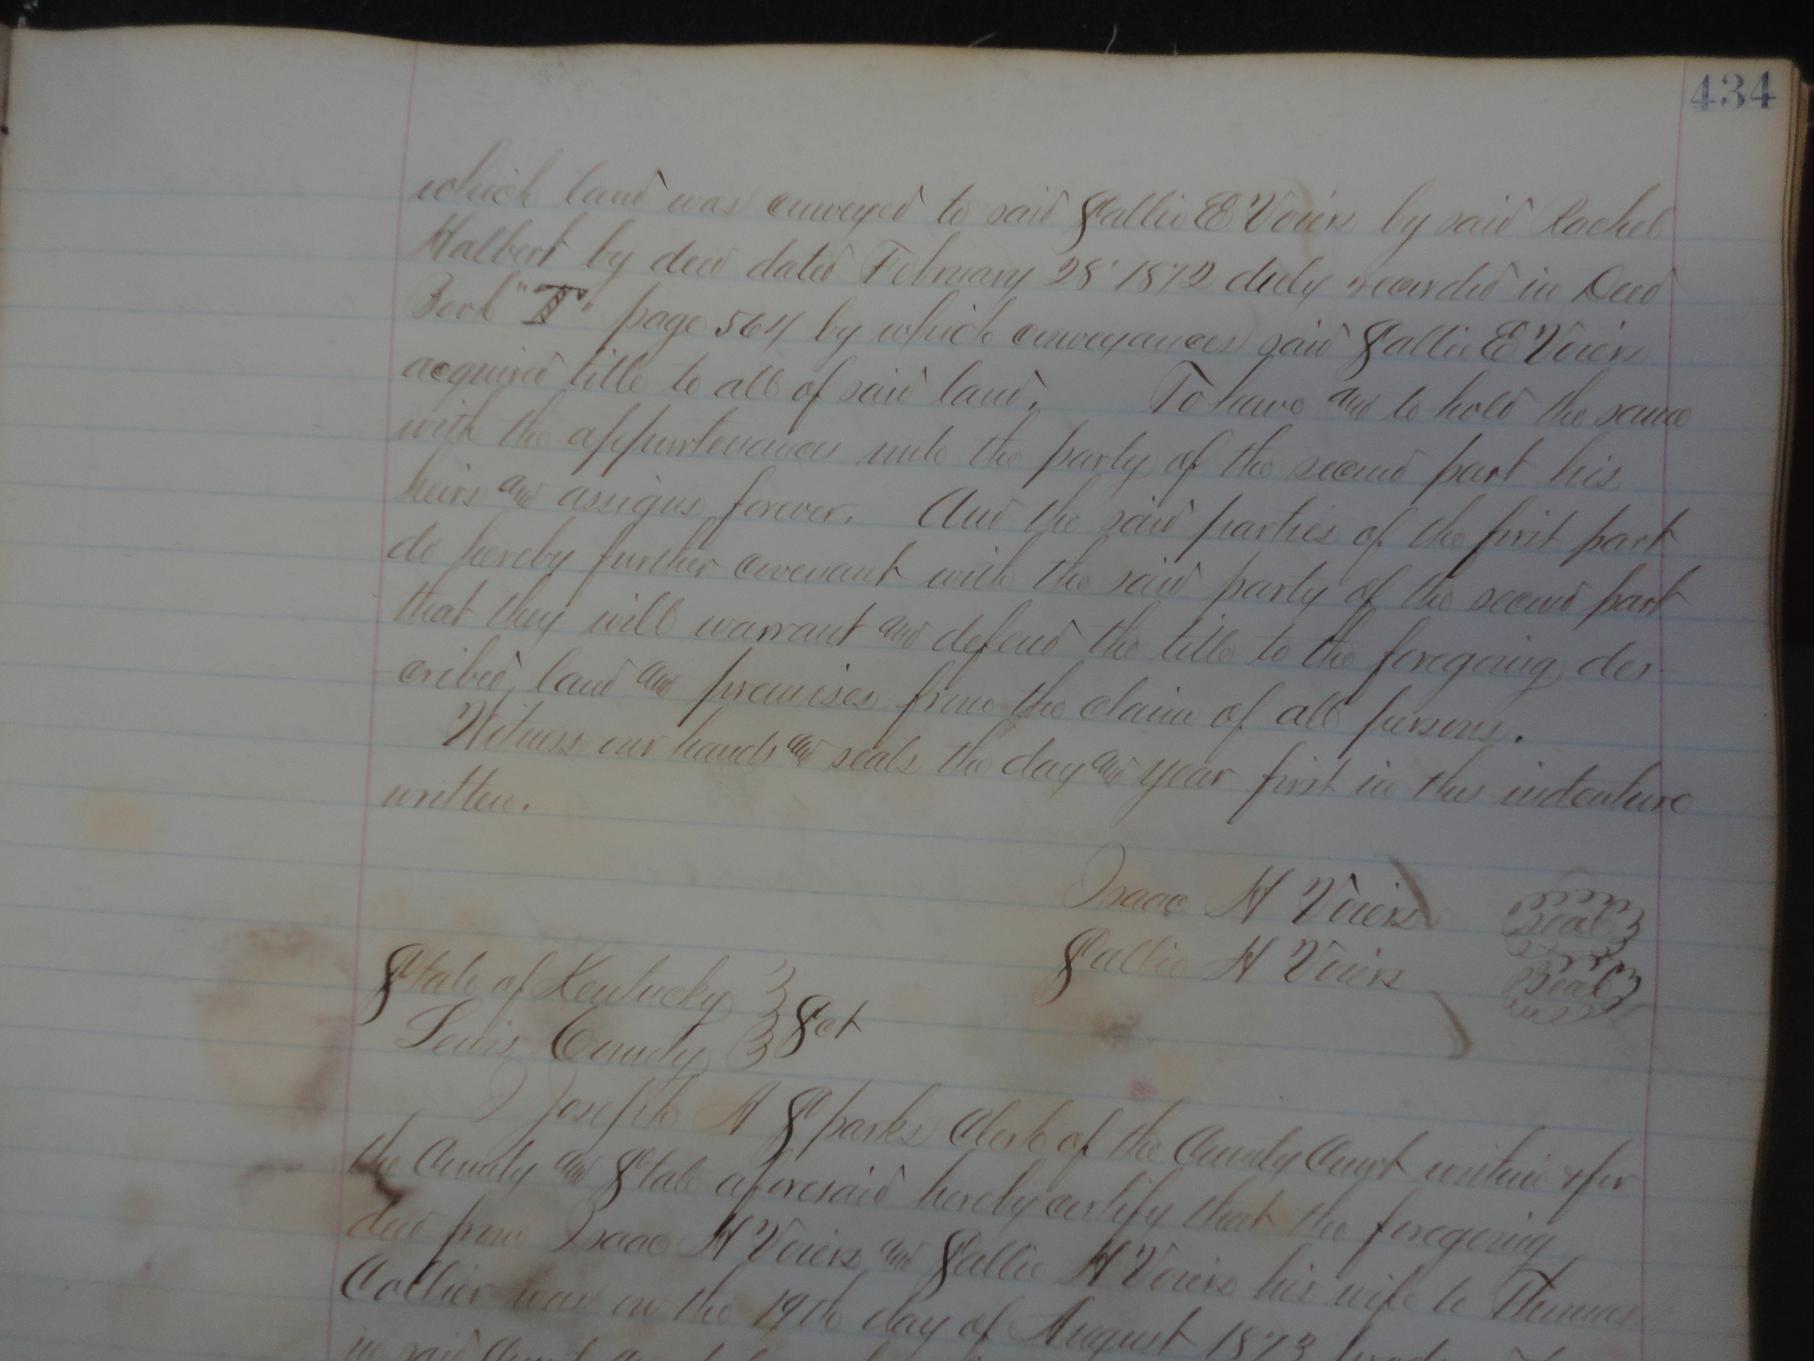 434
which land was conveyed to said Sallie E Voiers by said Rachel
Halbert by deed dated February 28' 1872 duly recorded in Deed
Book "T" page 564 by which conveyances said Sallie E Voiers
acquired title to all of said land. To have and to hold the same
with the appurtenances unto the party of the second part his
heirs and assigns forever. And the said parties of the first part
do hereby further covenant with the said party of the second part
that they will warrant and defend the title to the foregoing des-
cribed land and premises from the claim of all persons.
Witness our hands and seals the day and year first in this indenture
written.
Isaac H Voiers Seal
Sallie H Voiers Seal
State of Kentucky
Lewis County Sct
I Joseph A Sparks Clerk of the County Court within & for
the County and State aforesaid hereby certify that the foregoing
deed from Isaac H Voiers and Sallie H Voiers his wife to Thomas
Collier was on the 19th day of August 1873
in said